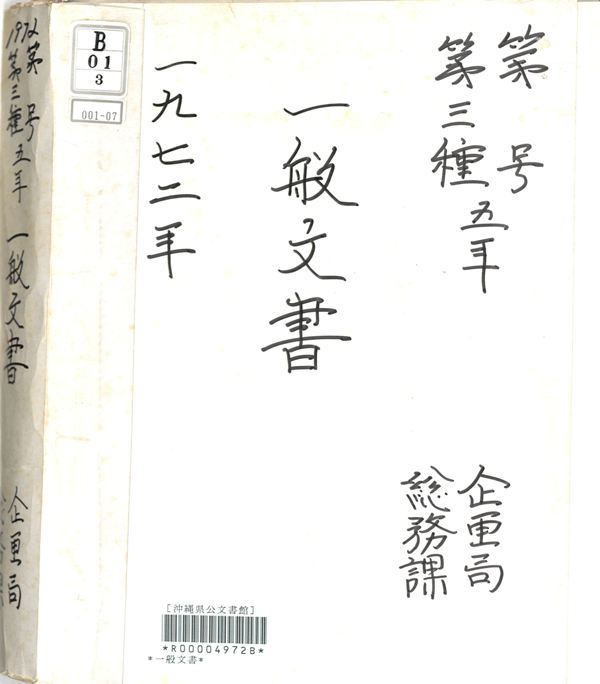 第　号
第三種五年
一般文書
一九七二年
企画局
総務課
B
01
3
001-07
1972第　号
第三種五年
一般文書
企画局
総務課
[沖縄県公文書館]
*R00004972B*
*一般文書*